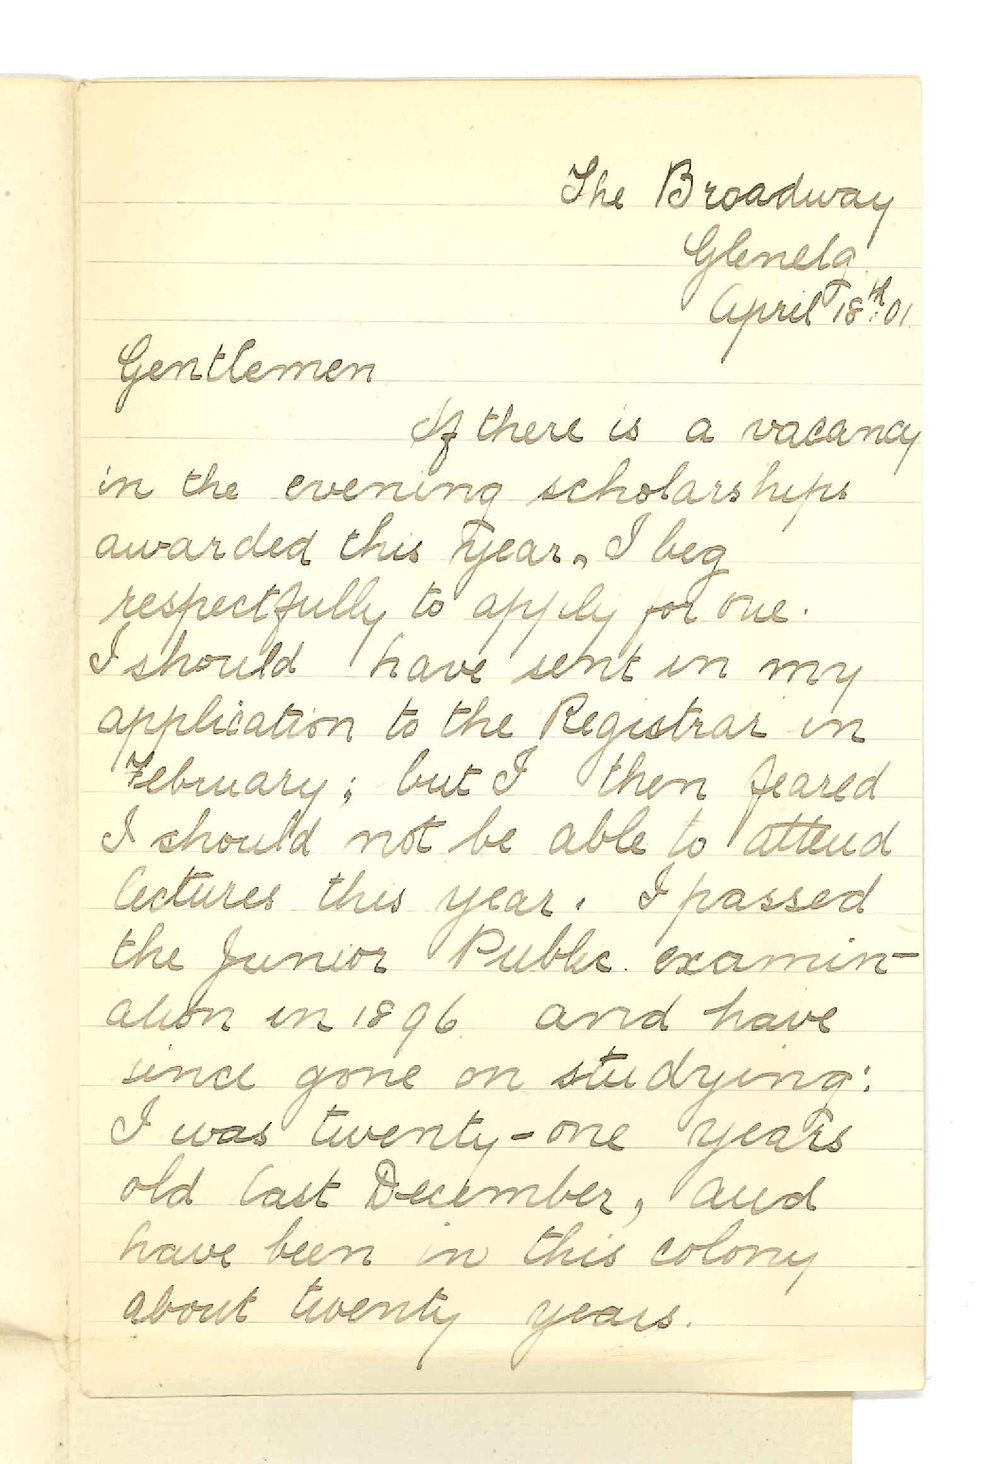 The Broadway
Glenelg.
April 18th: 01.
Gentlemen
If there is a vacancy
in the evening scholarships
awarded this year, I beg
respectfully to apply for one.
I should have sent in my
application to the Registrar in
February; but I then feared
I should not be able to attend
lectures this year. I passed
the Junior Public examin-
ation in 1896. and have
since gone on studying:
I was twenty-one years
old last December, and
have been in this colony
about twenty years.